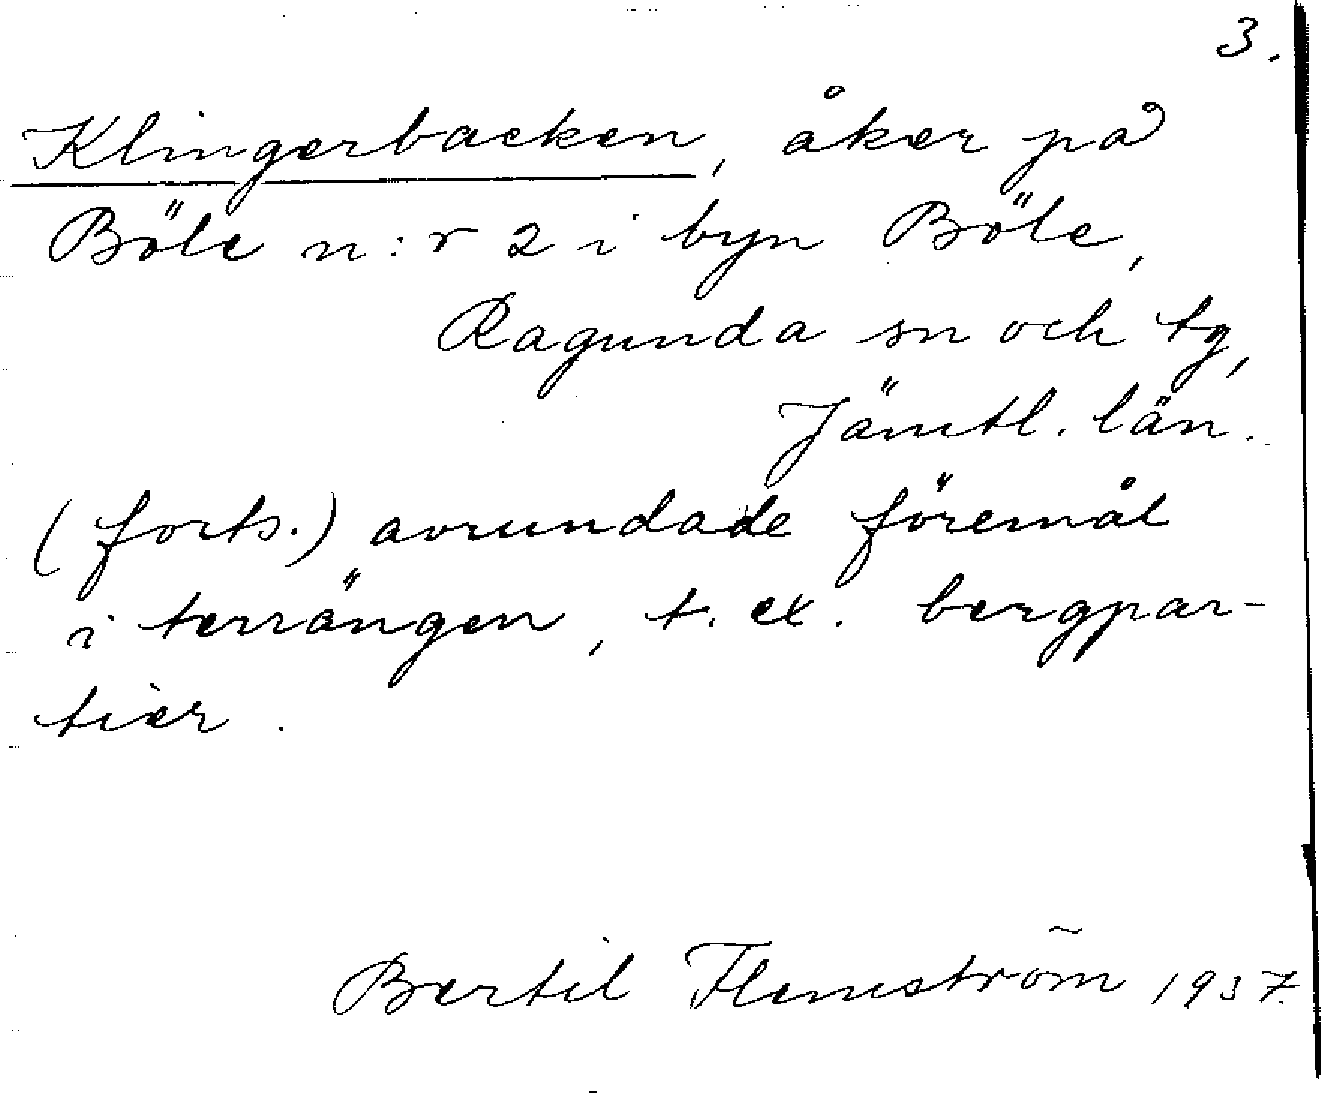 3.
Klingerbacken, åker på
Böle n:r 2 i byn Böle,
Ragunda sn och tg,
Jämtl. län.
(forts.) avrundade föremål
i terrängen, t. ex. bergpar-
tier.
Bertil Flemström 1937.